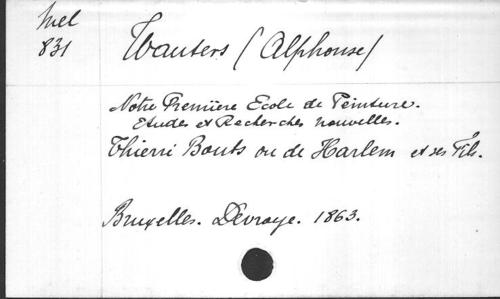 Mel
831
Wauters (Alphonse)
Notre Première Ecole de Peinture.
Etudes et Recherches nouvelles.
Thierri Bouts ou de Harlem et ses Fils.
Bruxelles. Devroye. 1863.